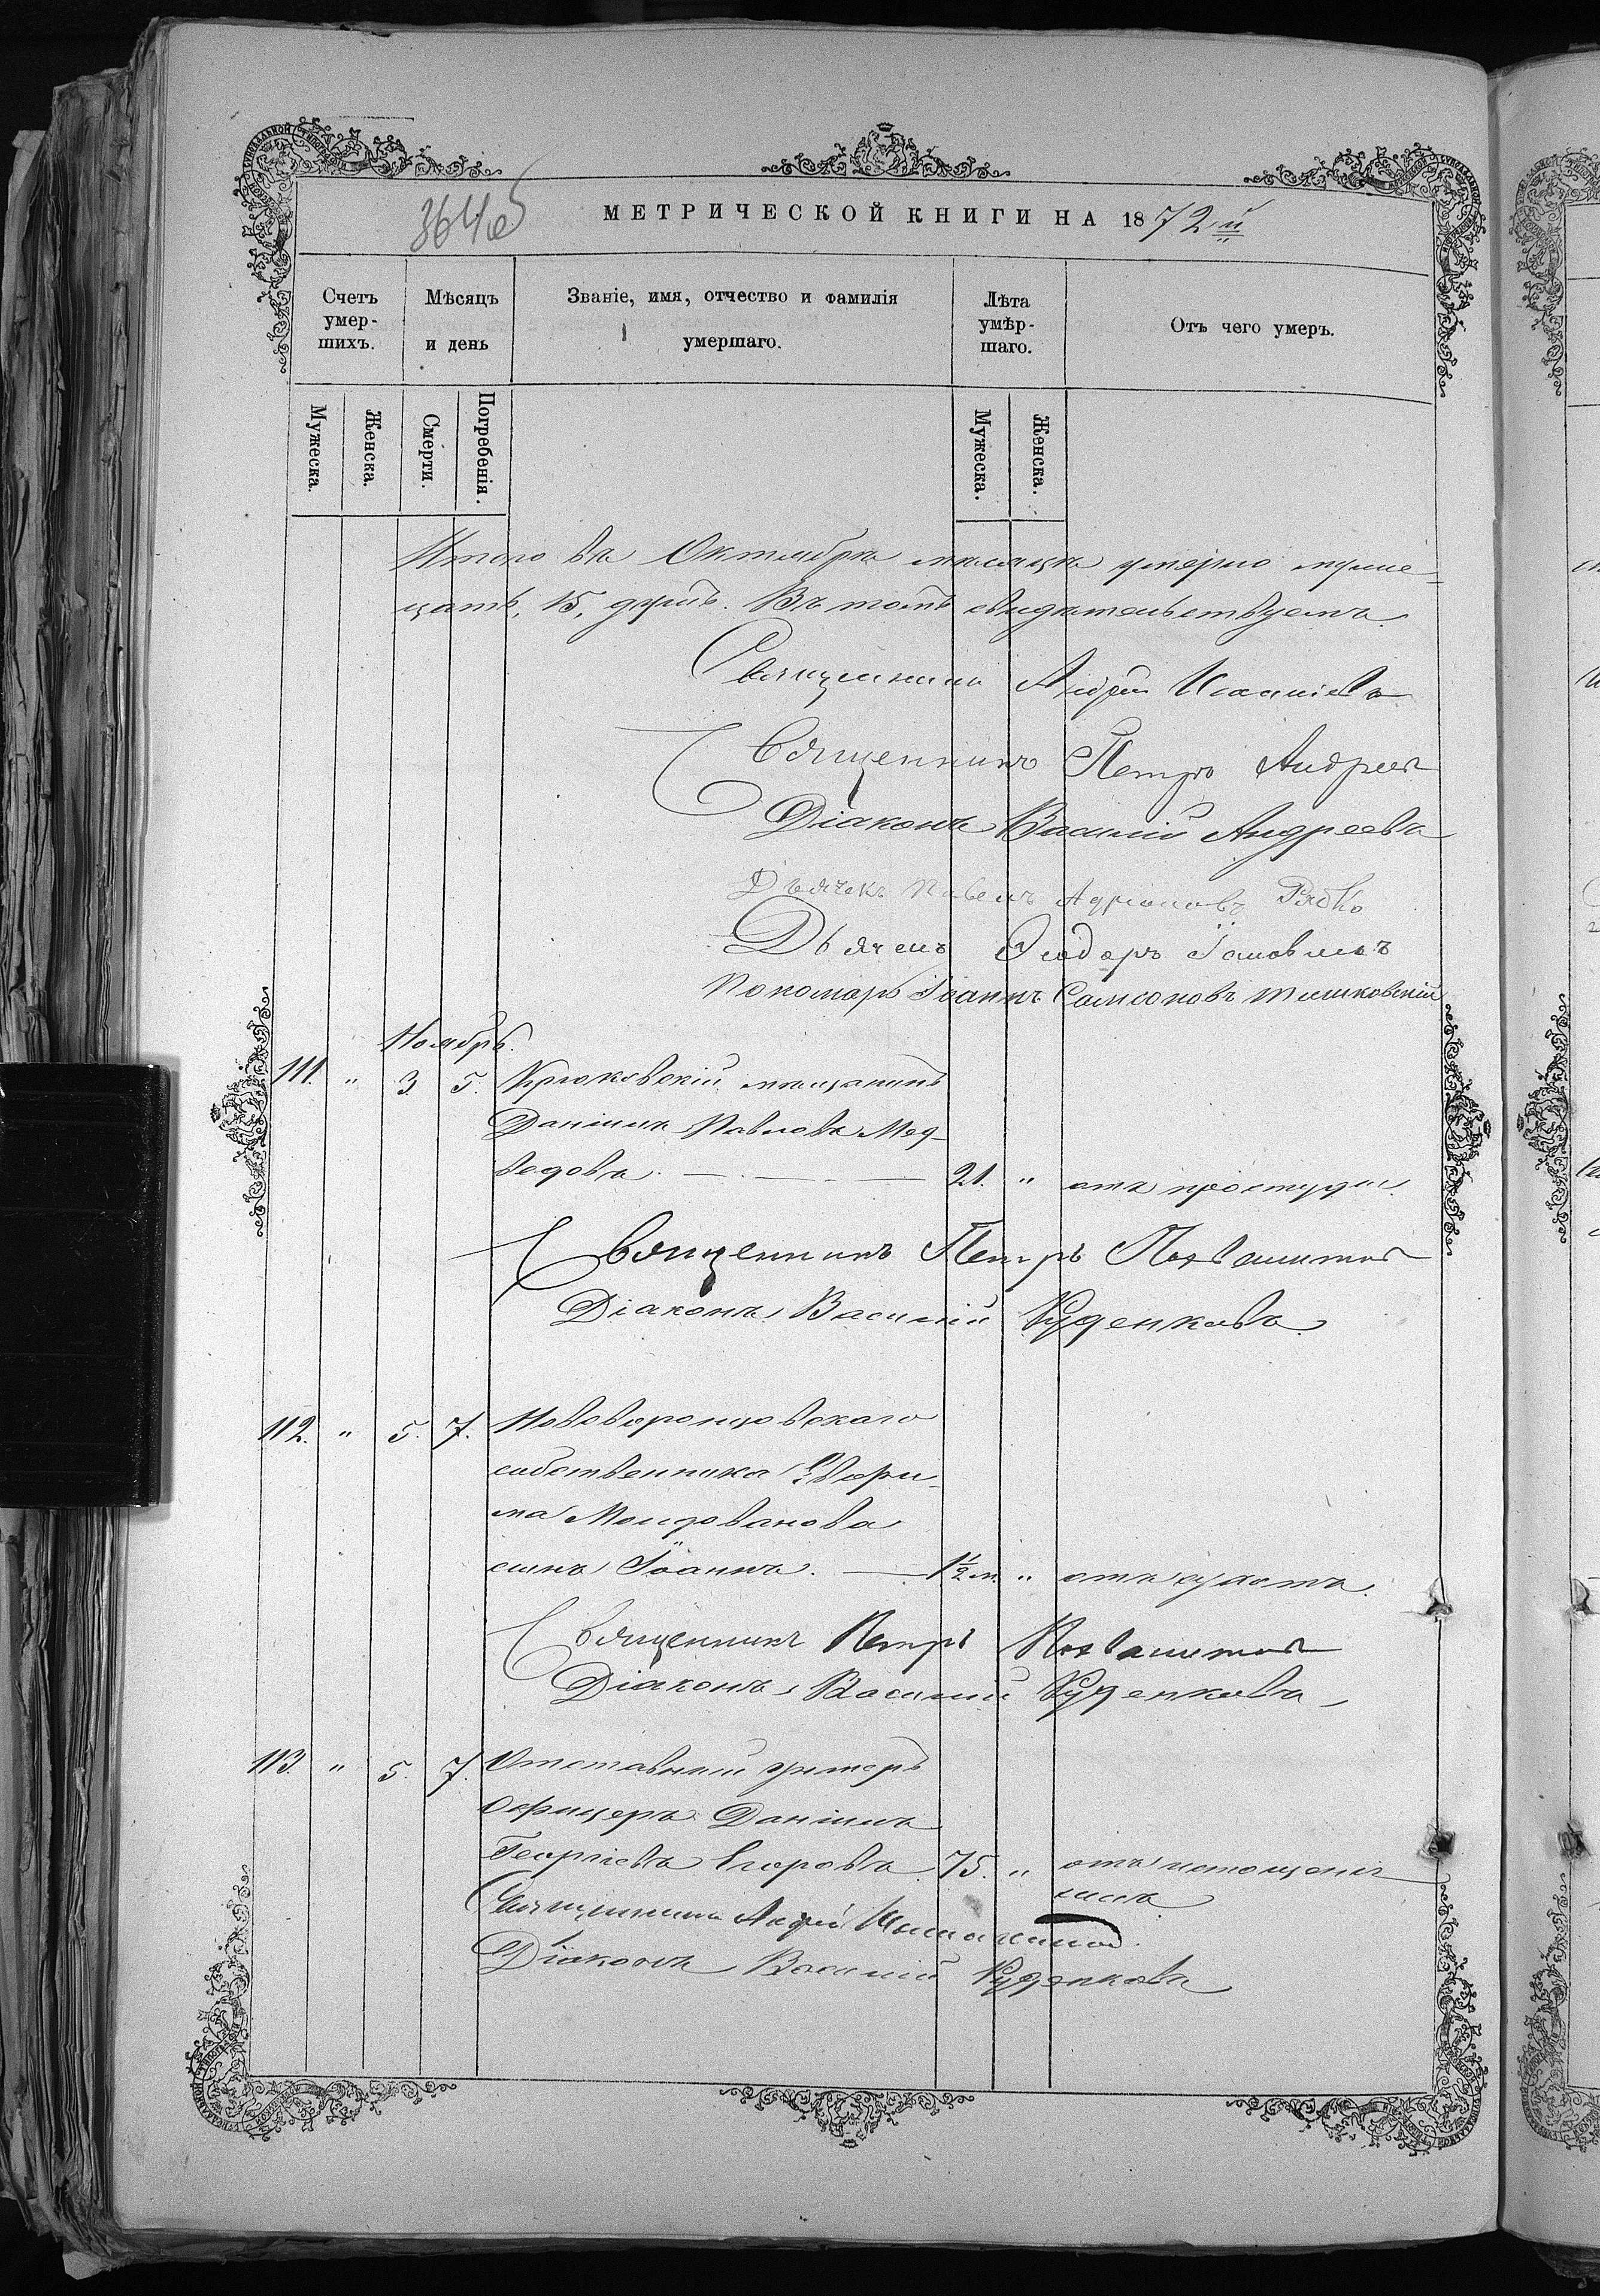 364 об
МЕТРИЧЕСКОЙ КНИГИ НА 1872й
Счетъ умершихъ.
Мѣсяцъ и день
Званіе, имя, отчество и фамилія умершаго.
Лѣта умѣршаго.
Отъ чего умеръ.
Мужеска.
Женска.
Смерти.
Погребенія.
Мужеска.
Женска.
Итого въ Октябрѣ мѣсяцѣ умерло
15, душъ. Въ томъ свидѣтельствуемъ.
Священникъ Андрей
Священникъ Петръ Андреев
Діаконъ Василій Андреевъ
Дьячекъ Павелъ Адріановъ
Дьячекъ Ѳеодоръ
Пономарь Іоаннъ Самсоновъ
Ноябрь.
111. " 3. 5. Крюковскій мѣщанинъ
Даніилъ Павловъ Мед-
ведовъ. 21. " отъ простуды.
Священникъ Петръ
Діаконъ Василій Руденковъ
112. " 5. 7. Нововоронцовскаго
собственника
ма Молдованова
сынъ Іоаннъ. 1½ м. " отъ сухотъ.
Священникъ Петръ
Діаконъ Василій Руденковъ
113. " 5. 7. Отставный унтеръ
офицеръ Даніилъ
Георгіевъ Егоровъ. 75. " отъ истощенія
силъ
Священникъ Андрей
Діаконъ Василій Руденковъ